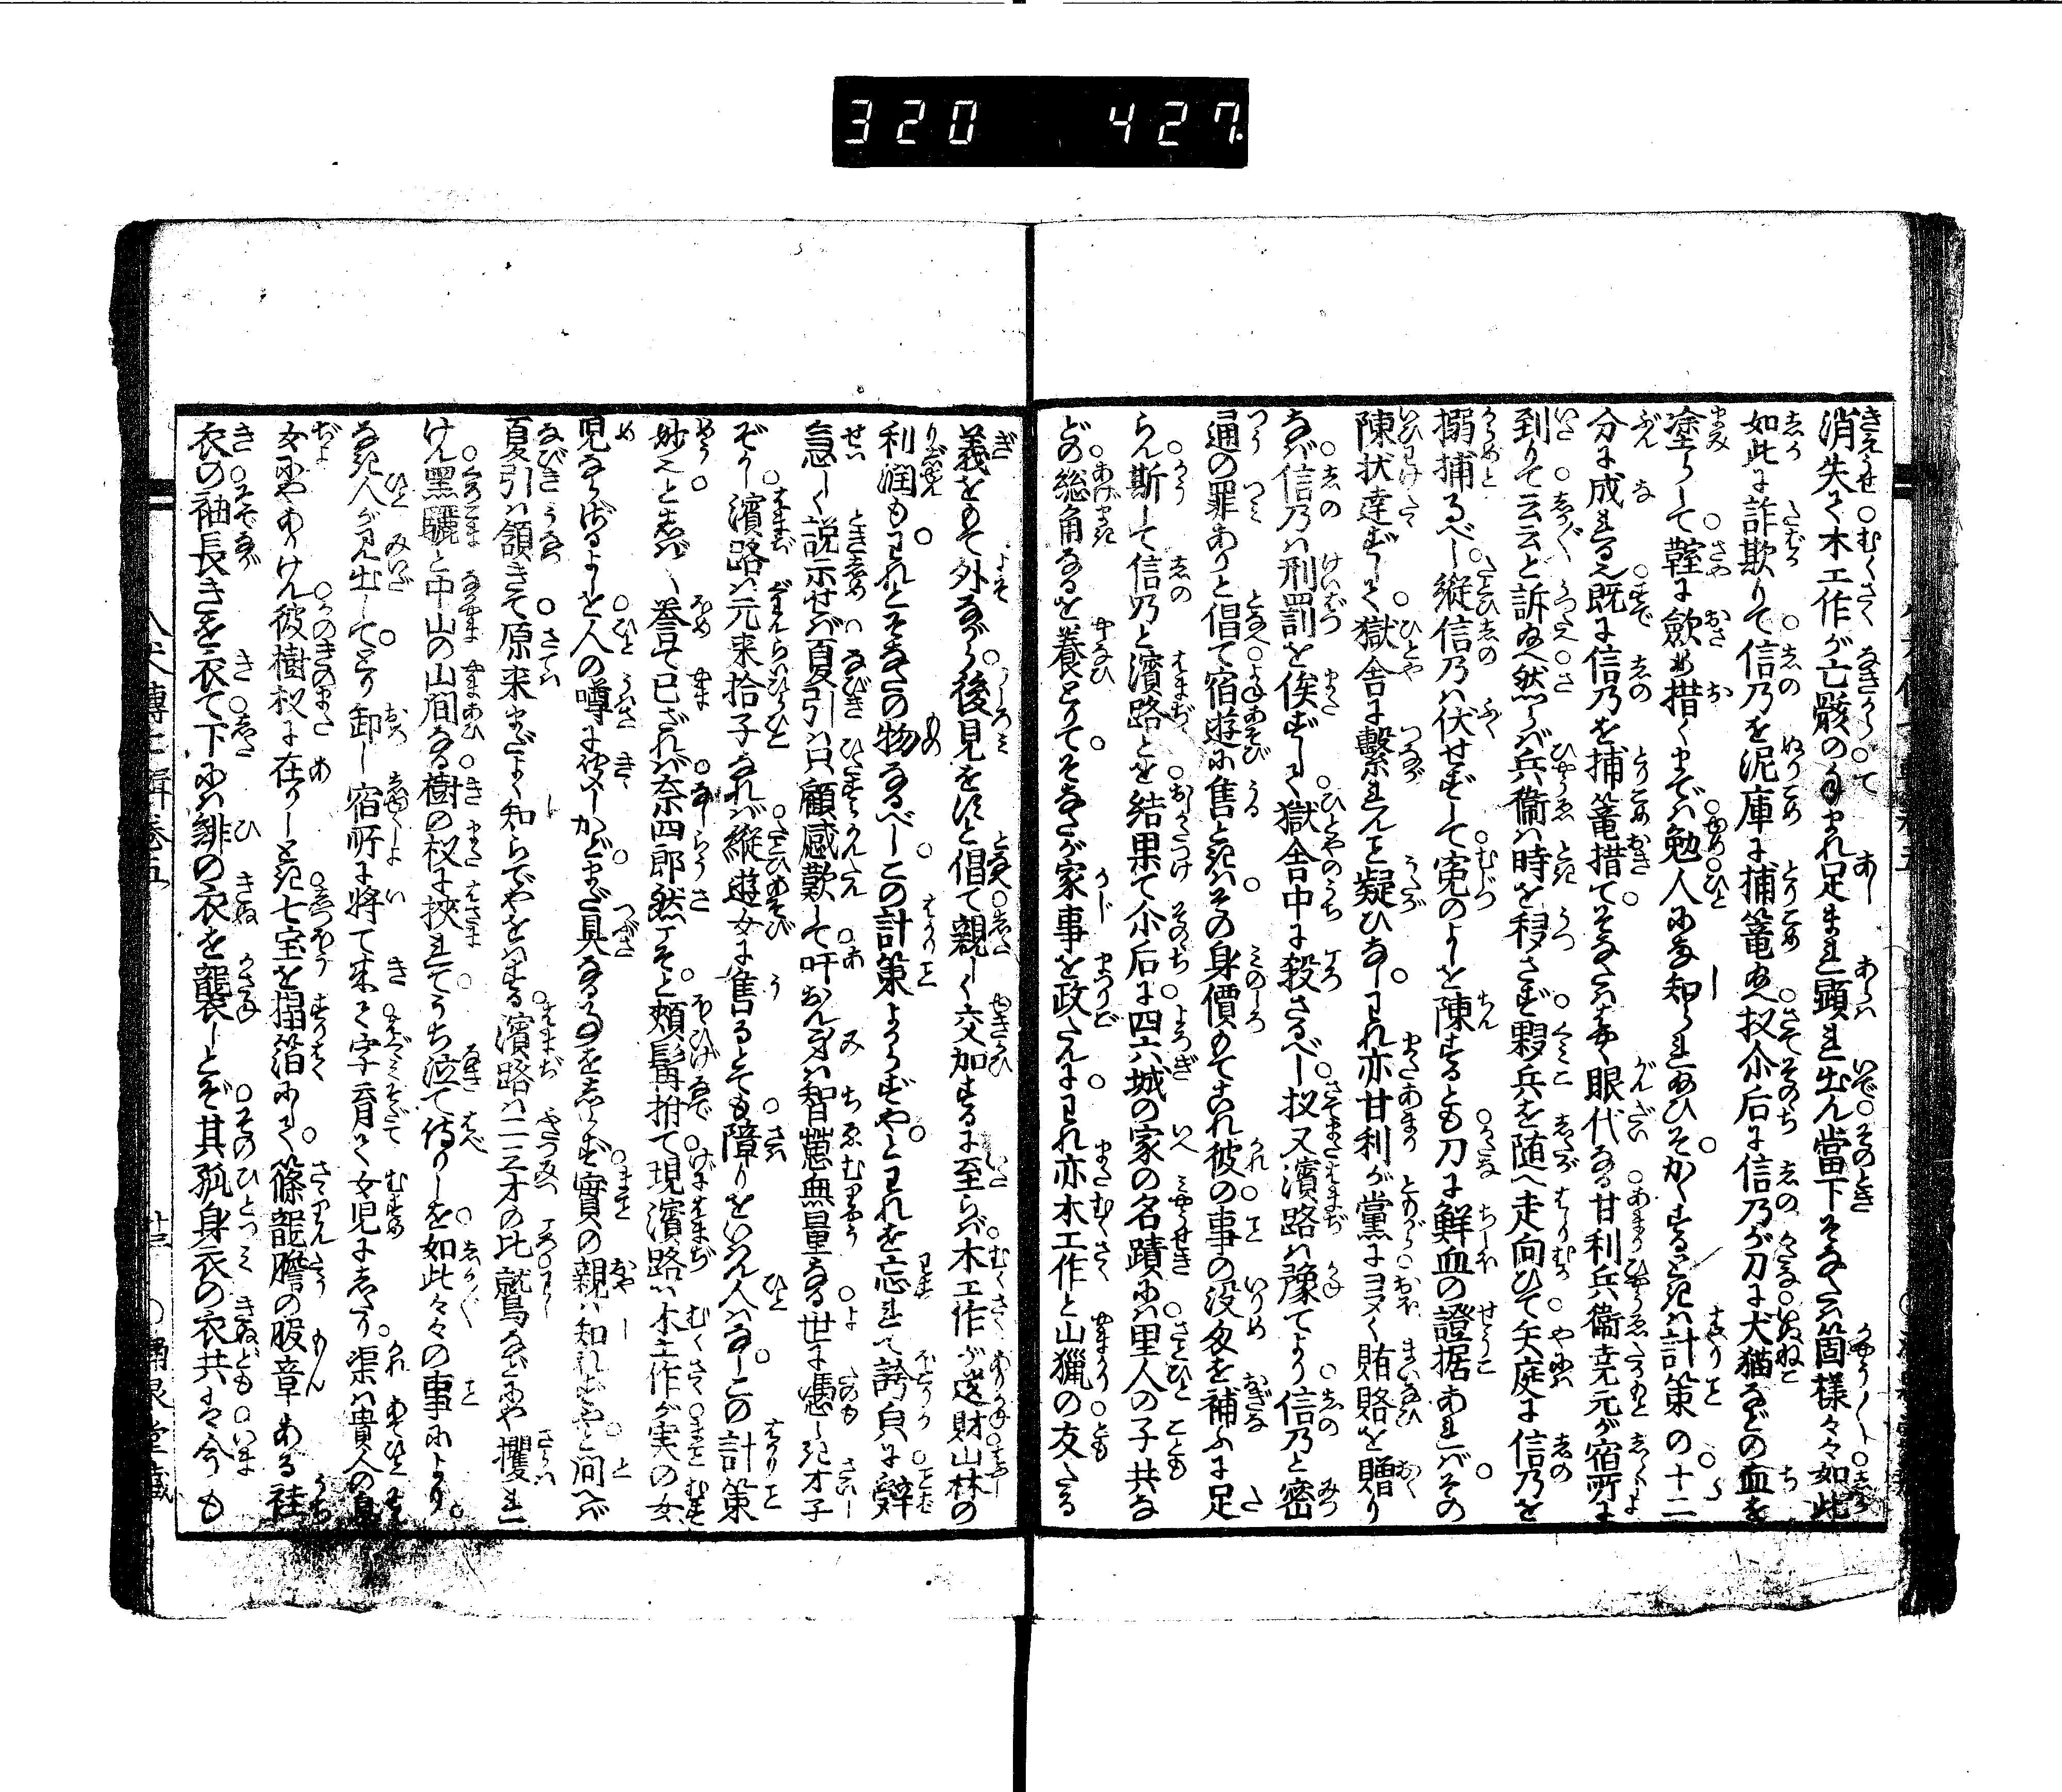 320 427
消失て木工作が亡骸の手まれ足まれ顕れ出ん當下そなたハ箇様々々如此
如此に詐欺りて信乃を泥庫に捕篭ゐへ扠尒后に信乃が刀に犬猫などの血を
塗らして鞘に歛め措くまでハ勉人にな知られあひそかくするときハ計策の十二
分に成れる也既に信乃を捕篭措てそなたハはや眼代なる甘利兵衞尭元が宿所に
到りて云云と訴ゐへ然らバ兵衞ハ時を移さず夥兵を随へ走向ひて矢庭に信乃を
搦捕るべし縦信乃ハ伏せずして寃のよしを陳するとも刀に鮮血の證据あれバその
陳状達ずして獄舎に繋れんこと疑ひなしわれ亦甘利が黨によく賄賂を贈り
なバ信乃ハ刑罰を俟ずして獄舎中に殺さるべし扠又濱路ハ豫てより信乃と密
通の罪ありと倡て宿遊に售ときハその身價もてわれ彼の事の没匁を補ふに足
らん斯して信乃と濱路とを結果て尒后に四六城の家の名蹟にハ里人の子共な
どの総角なるを養とりてそなたが家事を政たまハんにわれ亦木工作と山獵の友たる
義をもて外ながら後見をせんと倡て親しく交加するに至らバ木工作が遺財山林の
利潤もわれとそなたの物なるべしこの計策よからずやとわれを忘れて誇㒵に辭
急しく説示せバ夏引ハ只顧感歎して吁おん身ハ智慧無量なる世に憑しき才子
ぞかし濱路ハ元来拾子なれバ縦遊女に售るとても障りをいふ人ハなしこの計策
妙也と志バ〱誉て已ざれバ奈四郎然こそと頬髯拊て現濱路ハ木工作が実の女
児ならざるよしを人の噂に聴しかどまだ具なる事を志らず實の親ハ知れずやと問へバ
夏引ハ頷きて原来まだよく知らでやをハする濱路ハ二三才の比鷲などにや攫れ
けん黒驪と中山の山間なる樹の杈に挾れてうち泣て侍りしを如此々々の事により
なき人が見出してとり卸し宿所に將て来て字育て女児にしたり渠ハ貴人の息
女にやありけん彼樹杈に在りしとき七宝を摺箔にして篠龍膽の服章ある袿
衣の袖長きを衣て下にハ緋の衣を襲しとぞ其孤身衣の衣共ハ今も
八犬傳七輯巻五